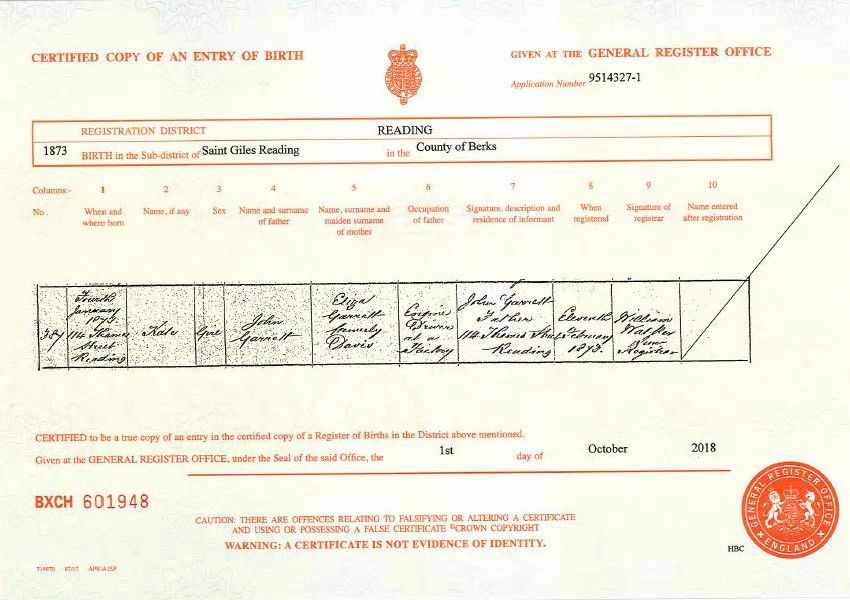 CERTIFIED COPY OF AN ENTRY OF BIRTH
GIVEN AT THE GENERAL REGISTER OFFICE
Application Number 9514327-1
REGISTRATION DISTRICT READING
1873 BIRTH in the Sub-district of Saint Giles Reading in the County of Berks
Columns:- 1 2 3 4 5 6 7 8 9 10
No. When and where born Name, if any Sex Name and surname of father Name, surname and maiden surname of mother Occupation of father Signature, description and residence of informant When registered Signature of registrar Name entered after registration
387
Fourth
January
1873
114 Thames
Street
Reading
Kate
Girl
John
Garrett
Eliza
Garrett
formerly
Davis
Engine
Driver
at a
Factory
John Garrett
Father
114 Thames
Reading
Eleventh
February
1873.
William
Registrar
CERTIFIED to be a true copy of an entry in the certified copy of a Register of Births in the District above mentioned.
Given at the GENERAL REGISTER OFFICE, under the Seal of the said Office, the 1st day of October 2018
BXCH 601948
CAUTION: THERE ARE OFFENCES RELATING TO FALSIFYING OR ALTERING A CERTIFICATE
AND USING OR POSSESSING A FALSE CERTIFICATE ©CROWN COPYRIGHT
WARNING: A CERTIFICATE IS NOT EVIDENCE OF IDENTITY.
GENERAL REGISTER OFFICE
ENGLAND
HBC